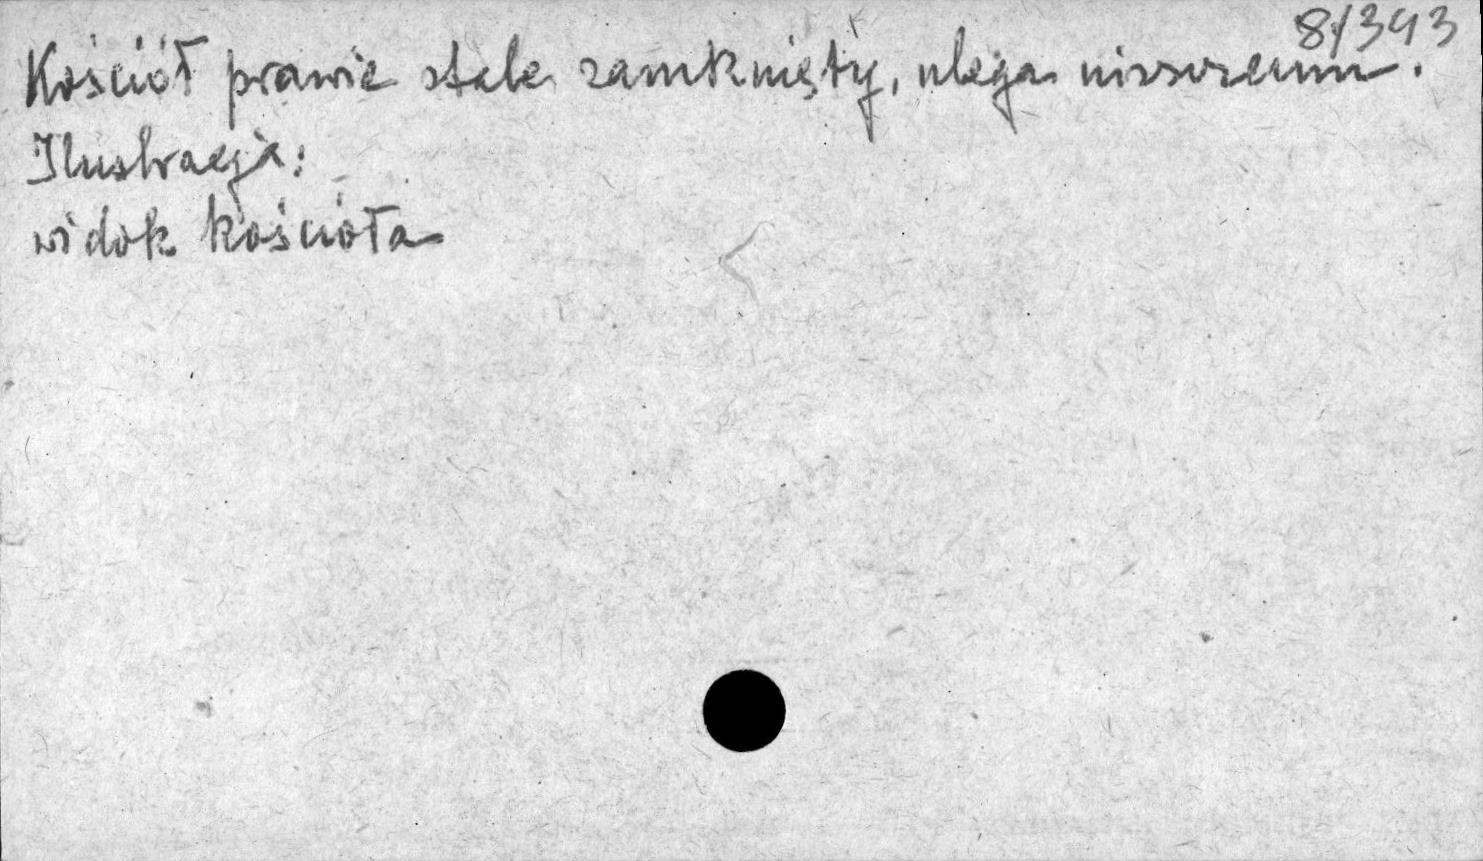 8/393
Kościół prawie stale zamknięty, ulega niszczeniu.
Ilustracja:
widok kościoła